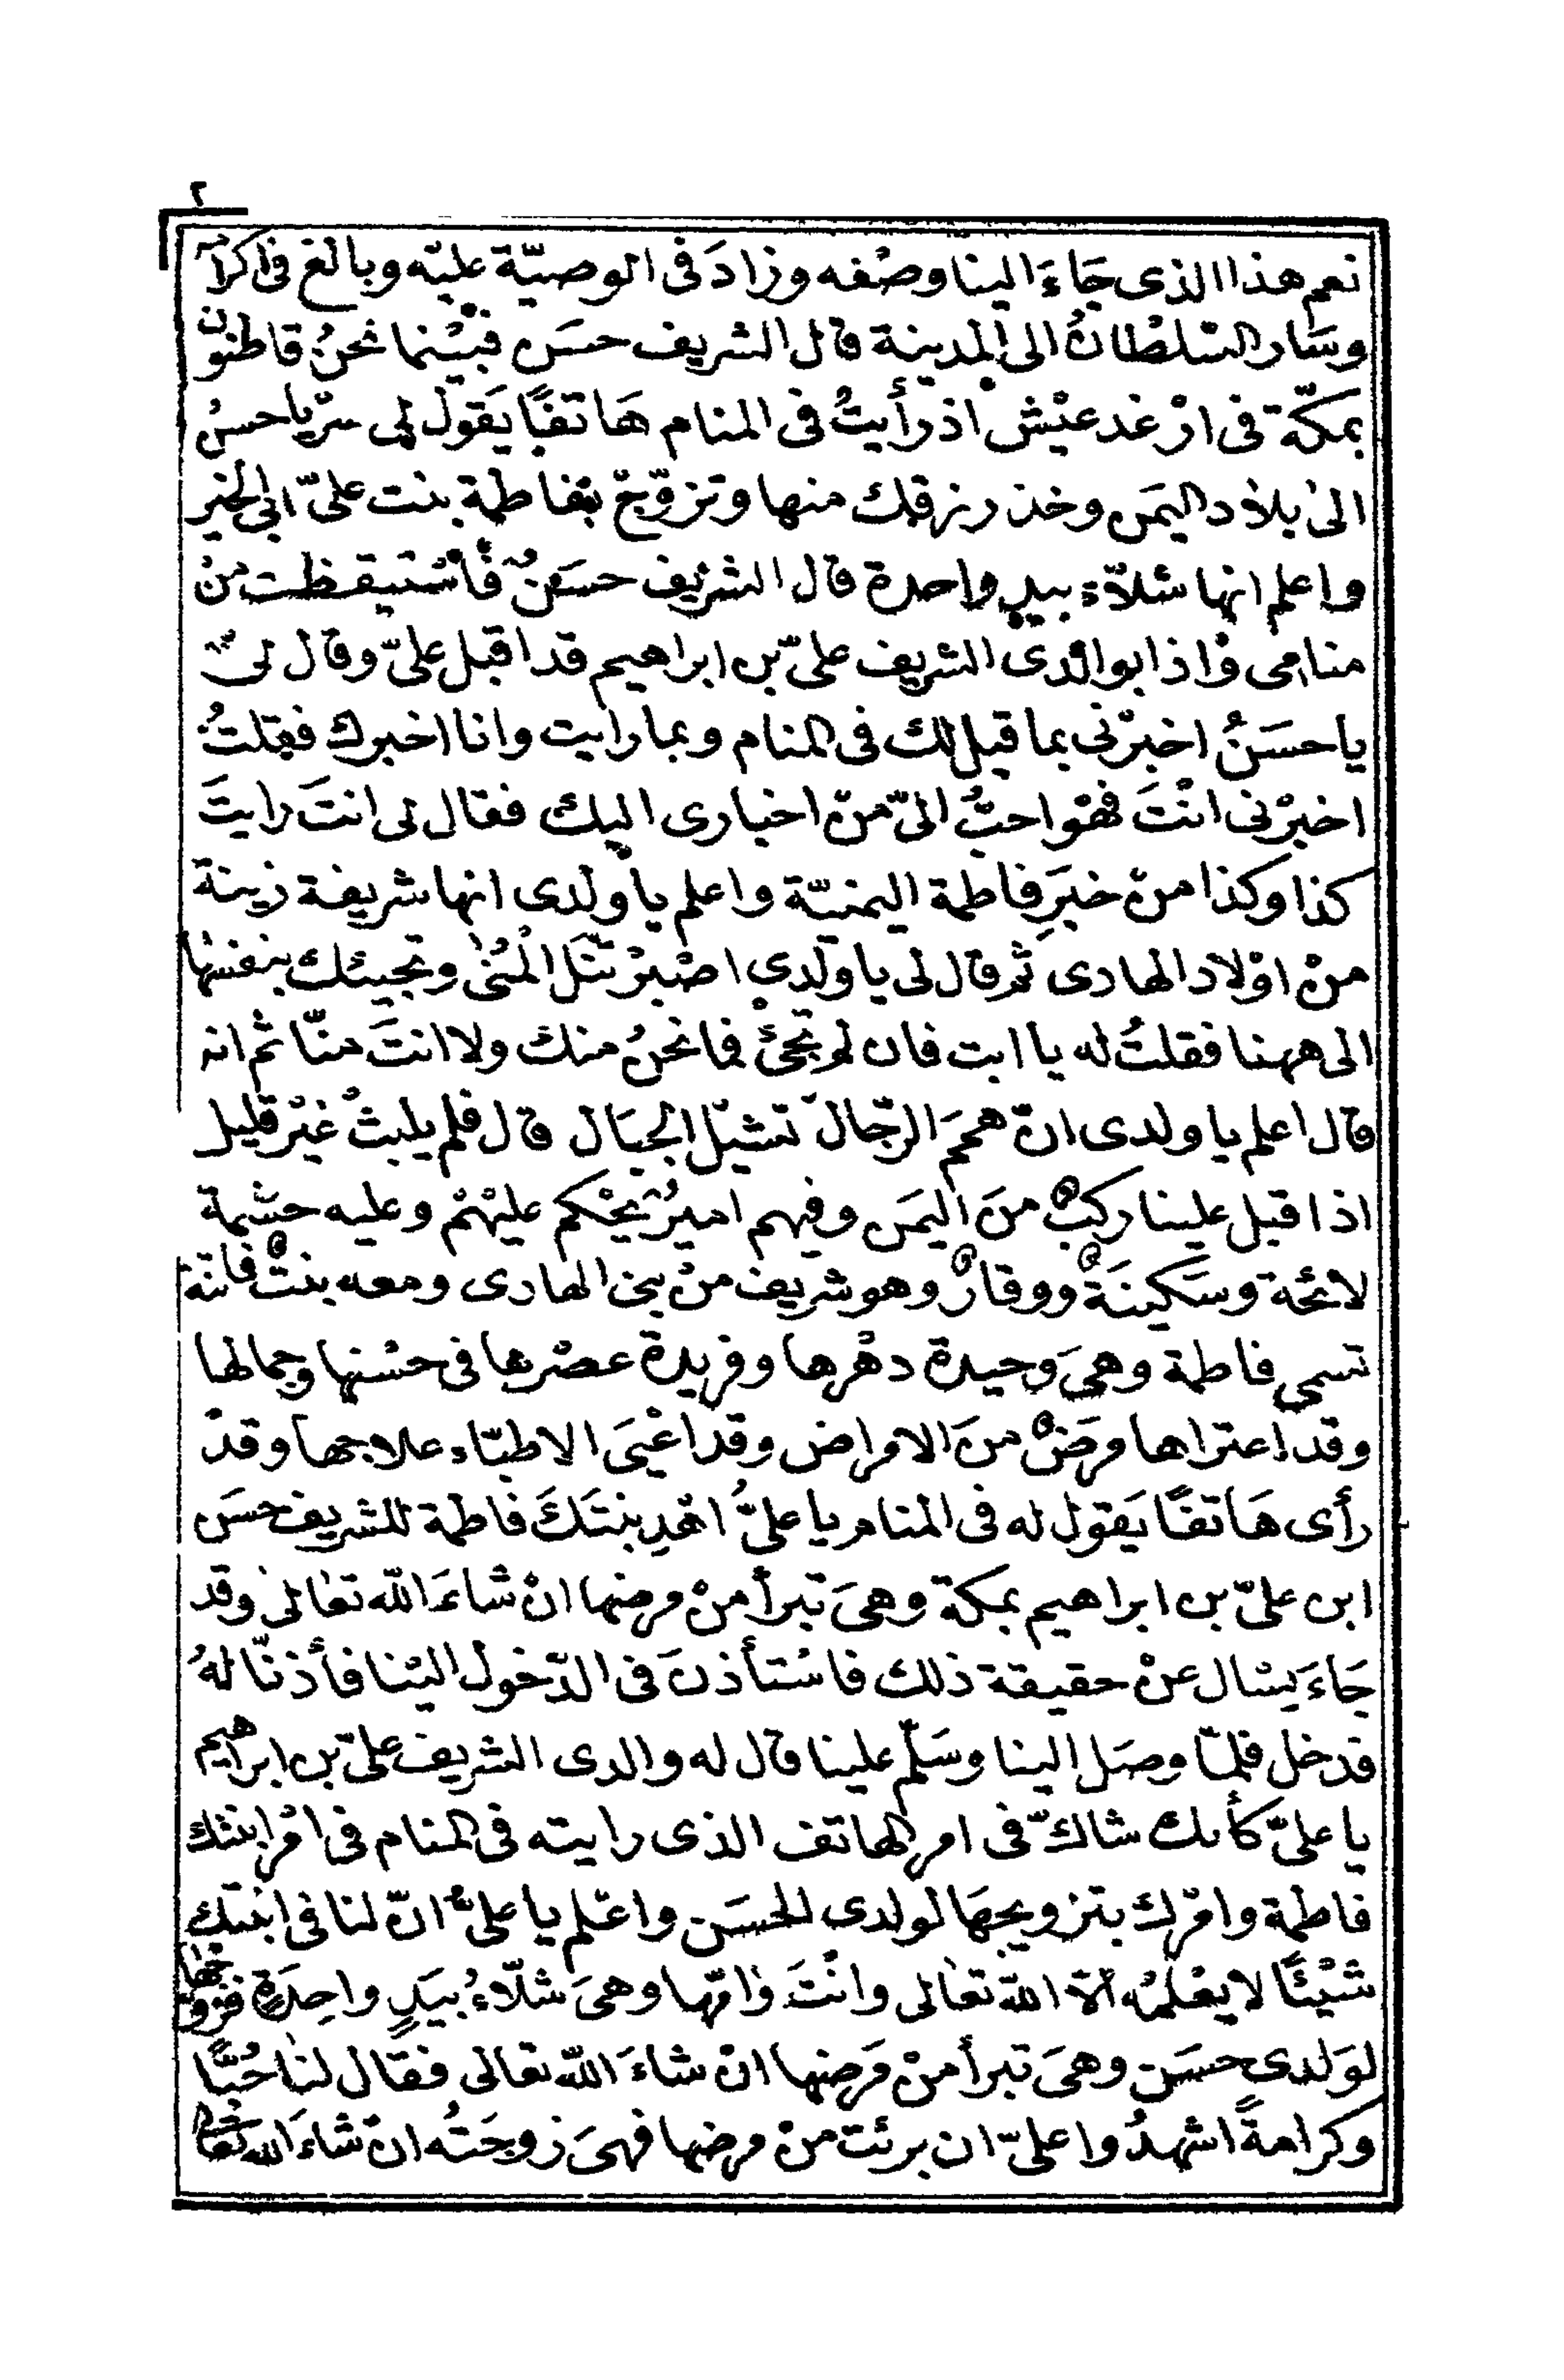 ٢
نعم هذا الذى جَاءَ الينا وصْفه وزادَ فى الوصيّة عليْه وبالغ فى اكرامه
وسَار السّلطانُ الى المدينة قال الشريف حسَن فبيْنما نحنُ قاطنون
بمكّة فى ارْغد عيْش اذ رأيتُ فى المنام هَاتفًا يَقول لى سرْ يا حسنُ
الىٰ بلاد اليمَن وخذ رزقك منها وتزوّجْ بفاطمة بنت علىّ ابى الخير
واعلم انها شلّاء بيدٍ واحدة قال الشريف حسَنٌ فاسْتيقظت منْ
منامى واذا بوالدى الشريف علىّ بن ابراهيم قد اقبل علىّ وقال لى
يا حسَنُ اخبرْنى بما قيل لك فى المنام وبما رايت وانا اخبرك فقلتُ
اخبرْنى انْتَ فهْو احبُّ الىّ منْ اخبارى اليك فقال لى انتَ رايتَ
كذا وكذا منْ خبَرِ فاطمة اليمنيّة واعلم يا ولدى انها شريفة زينة
منْ اوْلاد الهادى ثم قال لى يا ولدى اصْبرْ تنَل الْمُنىٰ وتجيئك بنفسها
الى ههنا فقلتُ له يا ابت فان لم تجئْ فما نحنُ منك ولا انتَ منّا ثم انه
قال اعلم يا ولدى انّ همَم الرّجالْ تشيْل الجبَال قال فلم يلبثْ غيْر قليل
اذ اقبل علينا ركبٌ منَ اليمَن وفيهم اميرٌ يحْكم عليْهمْ وعليه حشْمة
لائحة وسَكينَةٌ ووقارٌ وهو شريف منْ بنى الهادى ومعه بنتٌ فاتنة
تسمى فاطمة وهىَ وَحيدة دهْرها وفريدة عصْرها فى حسْنها وجمالها
وقد اعتراها مرَضٌ منَ الامراض وقد اعْيَى الاطبّاء علاجها وقدْ
رأى هَاتفًا يَقول له فى المنام يا علىُّ اهْدِ بنتَكَ فاطمة للشريف حسَن
ابن علىّ بن ابراهيم بمكة وهىَ تبرأ منْ مرضها انْ شاءَ الله تعالىٰ وقد
جَاءَ يسْال عنْ حقيقة ذلك فاسْتأذنَ فى الدّخول اليْنا فأذنّا لهُ
فدخل فلمّا وصَل الينا وسَلّم علينا قال له والدى الشريف علىّ بن ابراهيم
يا علىّ كأنك شاكّ فى امر الهاتف الذى رايته فى المنام فى امْر ابنتك
فاطمة وامْرك بتزويجهَا لولدى الحسَن واعْلم يا علىُّ انّ لنا فى ابنتك
شيْئًا لا يعْلمُه الّا الله تعالى وانْتَ وامّها وهىَ شلّاءُ بيَدٍ واحِدَةٍ فزوّجْها
لوَلدى حسَن وهىَ تبرأ منْ مَرضها انْ شاءَ الله تعالى فقال لنا حُبًّا
وكرامةً اشهدُوا علىّ ان برئت منْ مرضها فهىَ زوجَتُه انْ شاءَ الله تعالى